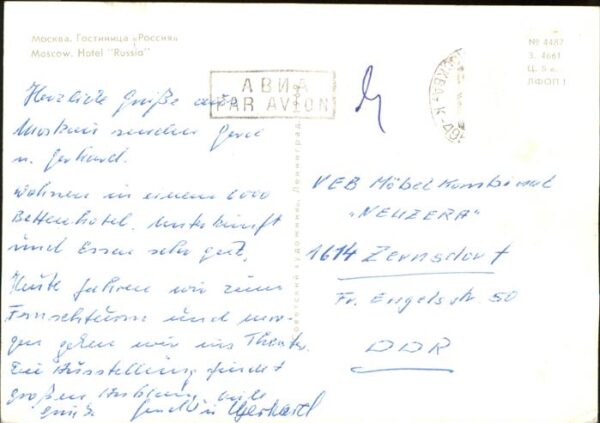 Москва. Гостиница „Россия"
Moscow. Hotel "Russia"
№ 4487
З. 4661
Ц. 5 к.
ЛФОП 1
АВИА
PAR AVION
Herzliche Grüße aus
Moskau senden Gerdi
u. Gerhard.
Wohnen in einem 6000
Bettenhotel. Unterkunft
und Essen sehr gut.
Heute fahren wir zum
Fernsehturm und mor-
gen gehen wir ins Theater.
Die Ausstellung findet
großen Anklang. Viele
Grüße Gerdi u Gerhard
Советский художник, Ленинград
VEB Möbel Kombinat
„NEUZERA"
1614 Zernsdorf
Fr. Engels str. 50
DDR